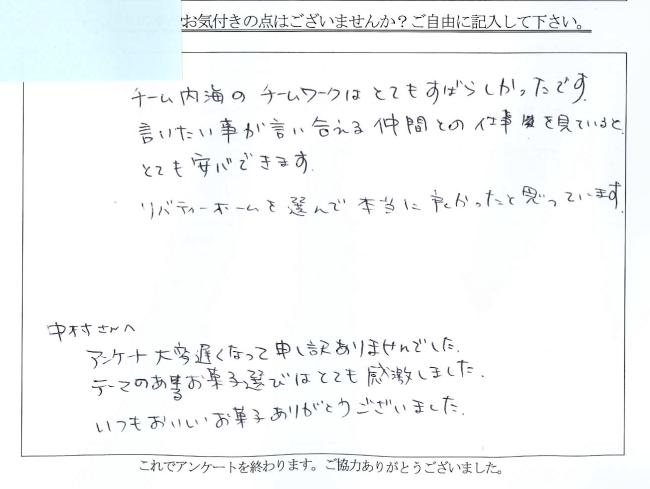 お気付きの点はございませんか？ご自由に記入して下さい。
チーム内海の チームワークは とてもすばらしかったです.
言いたい事が言い合える 仲間との 仕事 を見ていると、
とても 安心できます.
リバティーホームを 選んで 本当に 良かったと思っています.
中村さんへ
アンケート 大変遅くなって 申し訳ありませんでした.
テーマのあるお菓子選びはとても 感激しました.
いつもおいしいお菓子ありがとうございました.
これでアンケートを終わります。ご協力ありがとうございました。